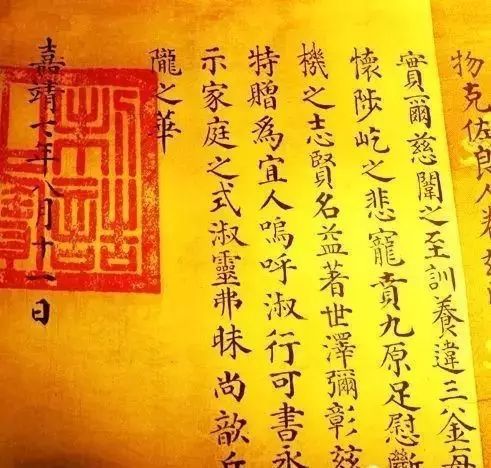 物克佐良人
實爾慈闈之至訓養違三釜每
懷陟屺之悲寵賁九原足慰斷
機之志賢名益著世澤彌彰茲
特贈為宜人嗚呼淑行可書永
示家庭之式淑靈弗昧尚歆丘
隴之華
嘉靖七年八月十一日